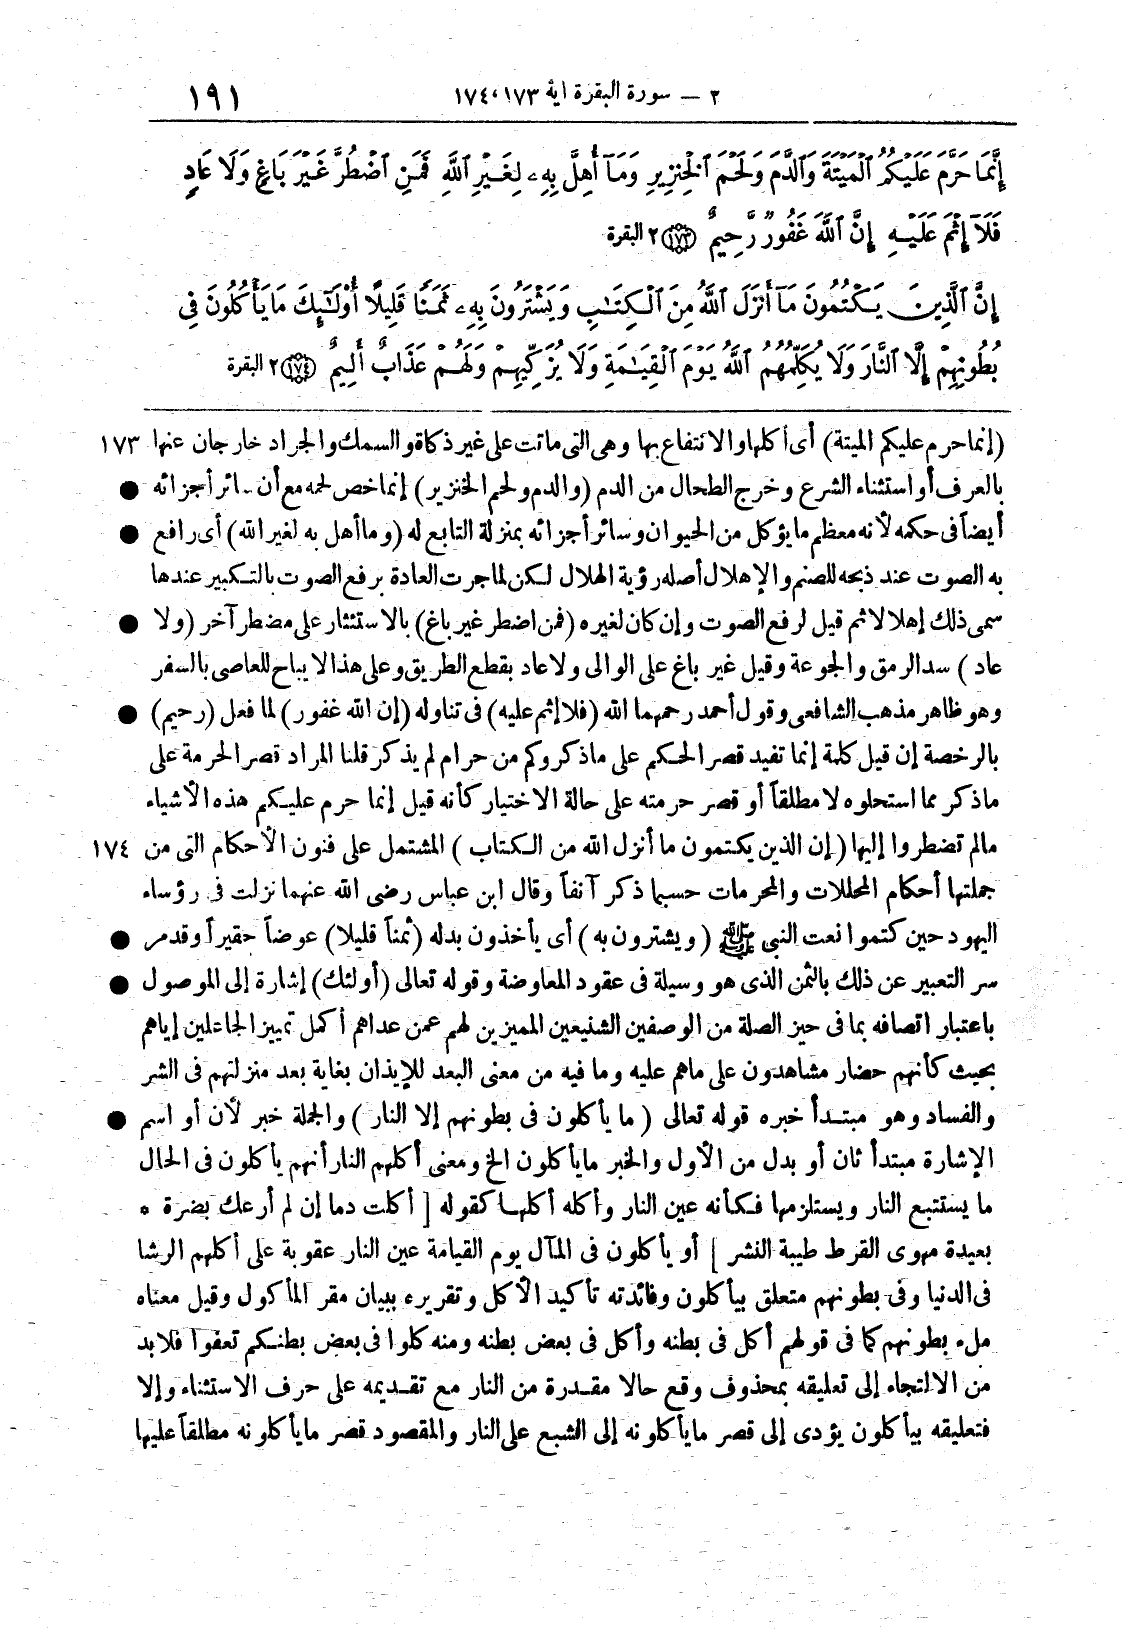 ٢ — سورة البقرة آية ١٧٣، ١٧٤
١٩١
إِنَّمَا حَرَّمَ عَلَيْكُمُ ٱلْمَيْتَةَ وَٱلدَّمَ وَلَحْمَ ٱلْخِنزِيرِ وَمَآ أُهِلَّ بِهِۦ لِغَيْرِ ٱللَّهِ فَمَنِ ٱضْطُرَّ غَيْرَ بَاغٍ وَلَا عَادٍ
فَلَآ إِثْمَ عَلَيْهِ إِنَّ ٱللَّهَ غَفُورٌ رَّحِيمٌ ١٧٣ ٢ البقرة
إِنَّ ٱلَّذِينَ يَكْتُمُونَ مَآ أَنزَلَ ٱللَّهُ مِنَ ٱلْكِتَٰبِ وَيَشْتَرُونَ بِهِۦ ثَمَنًا قَلِيلًا أُو۟لَٰٓئِكَ مَا يَأْكُلُونَ فِى
بُطُونِهِمْ إِلَّا ٱلنَّارَ وَلَا يُكَلِّمُهُمُ ٱللَّهُ يَوْمَ ٱلْقِيَٰمَةِ وَلَا يُزَكِّيهِمْ وَلَهُمْ عَذَابٌ أَلِيمٌ ١٧٤ ٢ البقرة
(إنما حرم عليكم الميتة) أى أكلها والانتفاع بها وهى التى ماتت على غير ذكاة والسمك والجراد خارجان عنها ١٧٣
بالعرف أو استثناء الشرع وخرج الطحال من الدم (والدم ولحم الخنزير) إنما خص لحمه مع أن سائر أجزائه ●
أيضاً فى حكمه لأنه معظم ما يؤكل من الحيوان وسائر أجزائه بمنزلة التابع له (وما أهل به لغير الله) أى رافع ●
به الصوت عند ذبحه للصنم والإهلال أصله رؤية الهلال لكن لما جرت العادة برفع الصوت بالتكبير عندها
سمى ذلك إهلالا ثم قيل لرفع الصوت وإن كان لغيره (فمن اضطر غير باغ) بالاستئثار على مضطر آخر (ولا ●
عاد) سد الرمق والجوعة وقيل غير باغ على الوالى ولا عاد بقطع الطريق وعلى هذا لا يباح للعاصى بالسفر
وهو ظاهر مذهب الشافعى وقول أحمد رحمهما الله (فلا إثم عليه) فى تناوله (إن الله غفور) لما فعل (رحيم) ●
بالرخصة إن قيل كلمة إنما تفيد قصر الحكم على ما ذكر وكم من حرام لم يذكر قلنا المراد قصر الحرمة على
ما ذكر مما استحلوه لا مطلقاً أو قصر حرمته على حالة الاختيار كأنه قيل إنما حرم عليكم هذه الأشياء
مالم تضطروا إليها (إن الذين يكتمون ما أنزل الله من الكتاب) المشتمل على فنون الأحكام التى من ١٧٤
جملتها أحكام المحللات والمحرمات حسبما ذكر آنفاً وقال ابن عباس رضى الله عنهما نزلت فى رؤساء
اليهود حين كتموا نعت النبى ﷺ (ويشترون به) أى يأخذون بدله (ثمناً قليلا) عوضاً حقيراً وقد مر ●
سر التعبير عن ذلك بالثمن الذى هو وسيلة فى عقود المعاوضة وقوله تعالى (أولئك) إشارة إلى الموصول ●
باعتبار اتصافه بما فى حيز الصلة من الوصفين الشنيعين المميزين لهم عمن عداهم أكمل تمييز الجاعلين إياهم
بحيث كأنهم حضار مشاهدون على ماهم عليه وما فيه من معنى البعد للإيذان بغاية بعد منزلتهم فى الشر
والفساد وهو مبتدأ خبره قوله تعالى (ما يأكلون فى بطونهم إلا النار) والجملة خبر لأن أو اسم ●
الإشارة مبتدأ ثان أو بدل من الأول والخبر ما يأكلون الخ ومعنى أكلهم النار أنهم يأكلون فى الحال
ما يستتبع النار ويستلزمها فكأنه عين النار وأكله أكلها كقوله [أكلت دما إن لم أرعك بضرة *
بعيدة مهوى القرط طيبة النشر] أو يأكلون فى المآل يوم القيامة عين النار عقوبة على أكلهم الرشا
فى الدنيا وفى بطونهم متعلق بيأكلون وفائدته تأكيد الأكل وتقريره ببيان مقر المأكول وقيل معناه
ملء بطونهم كما فى قولهم أكل فى بطنه وأكل فى بعض بطنه ومنه كلوا فى بعض بطنكم تعفوا فلا بد
من الالتجاء إلى تعليقه بمحذوف وقع حالا مقدرة من النار مع تقديمه على حرف الاستثناء وإلا
فتعليقه بيأكلون يؤدى إلى قصر ما يأكلونه إلى الشبع على النار والمقصود قصر ما يأكلونه مطلقاً عليها